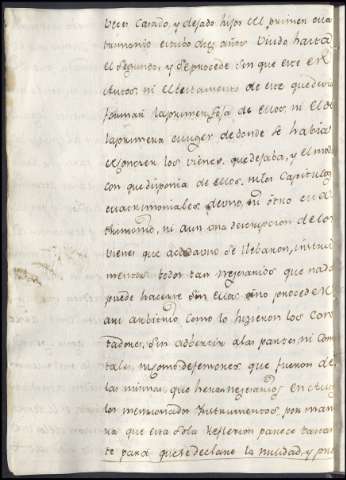 veces casado, y dejado hijos del primer ma
trimonio estubo diez años Viudo hasta
el segundo, y se procede sin que este en
Autos, ni el testamento de este que devia
formar la primera foja de ellos, ni el de
la primera muger de donde se havia
de conocer los vienes que dejaba, y el modo
con que disponia de ellos, ni los Capitulos
matrimoniales de uno, ni otro ma
trimonio, ni aun una descripcion de los
vienes que a cada uno se llebaron, instru
mentos todos tan necesarios que nada
puede hacerse sin ellos sino procede en
an arbitrio como lo hizieron los Con
tadores, sin advertir a las partes, ni Con
tales, ni somos de menores que fueron de
las mismas que heran necesarios en Autos
los mencionados Instrumentos por mane
ra que esta sola reflexion parece bastan
te para que se declare la nulidad, y pro